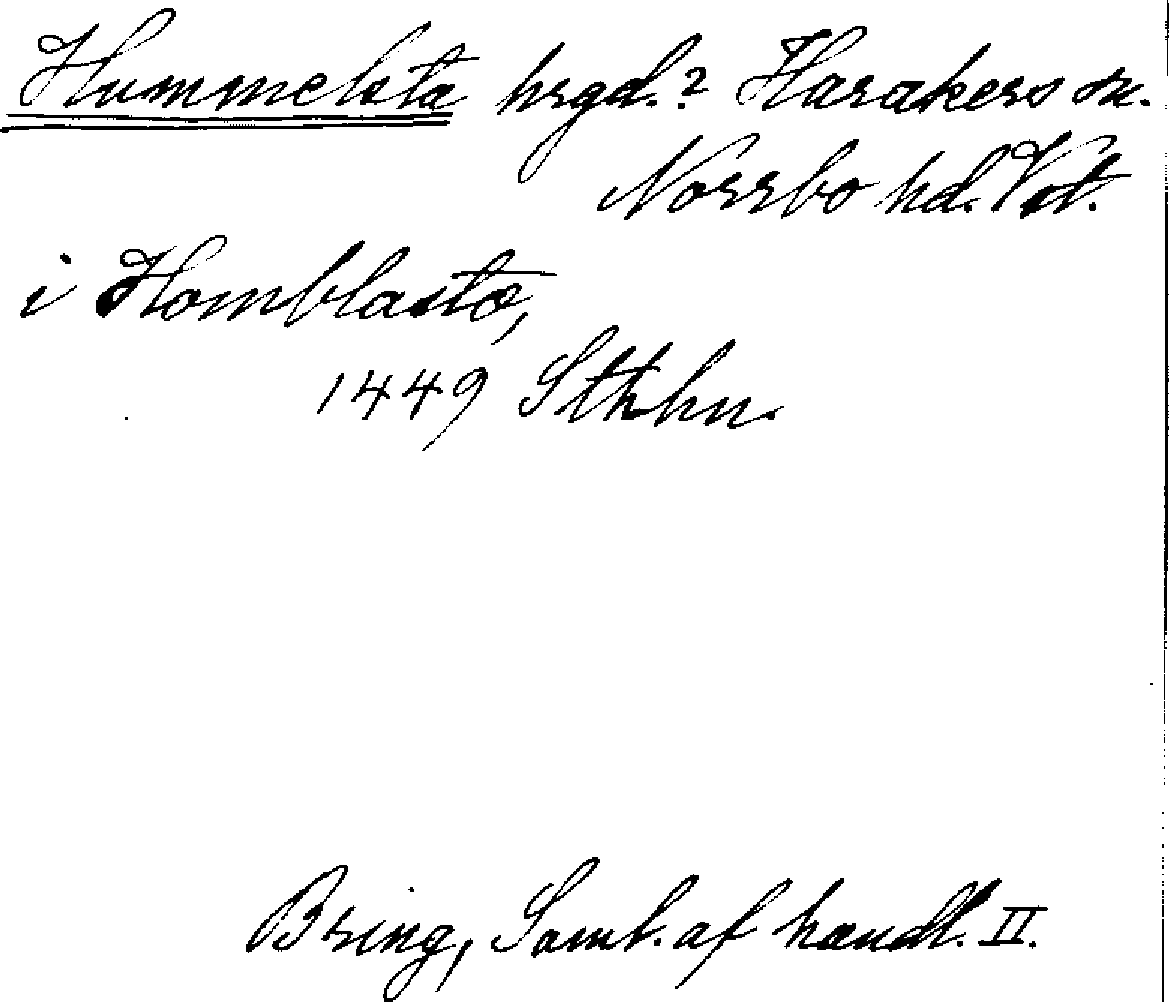 Hummelsta hrgd.? Harakers sn.
Norrbo hd. Vst.
i Homblasta,
1449 Sthhn.
Bring, Saml. af handl. II.